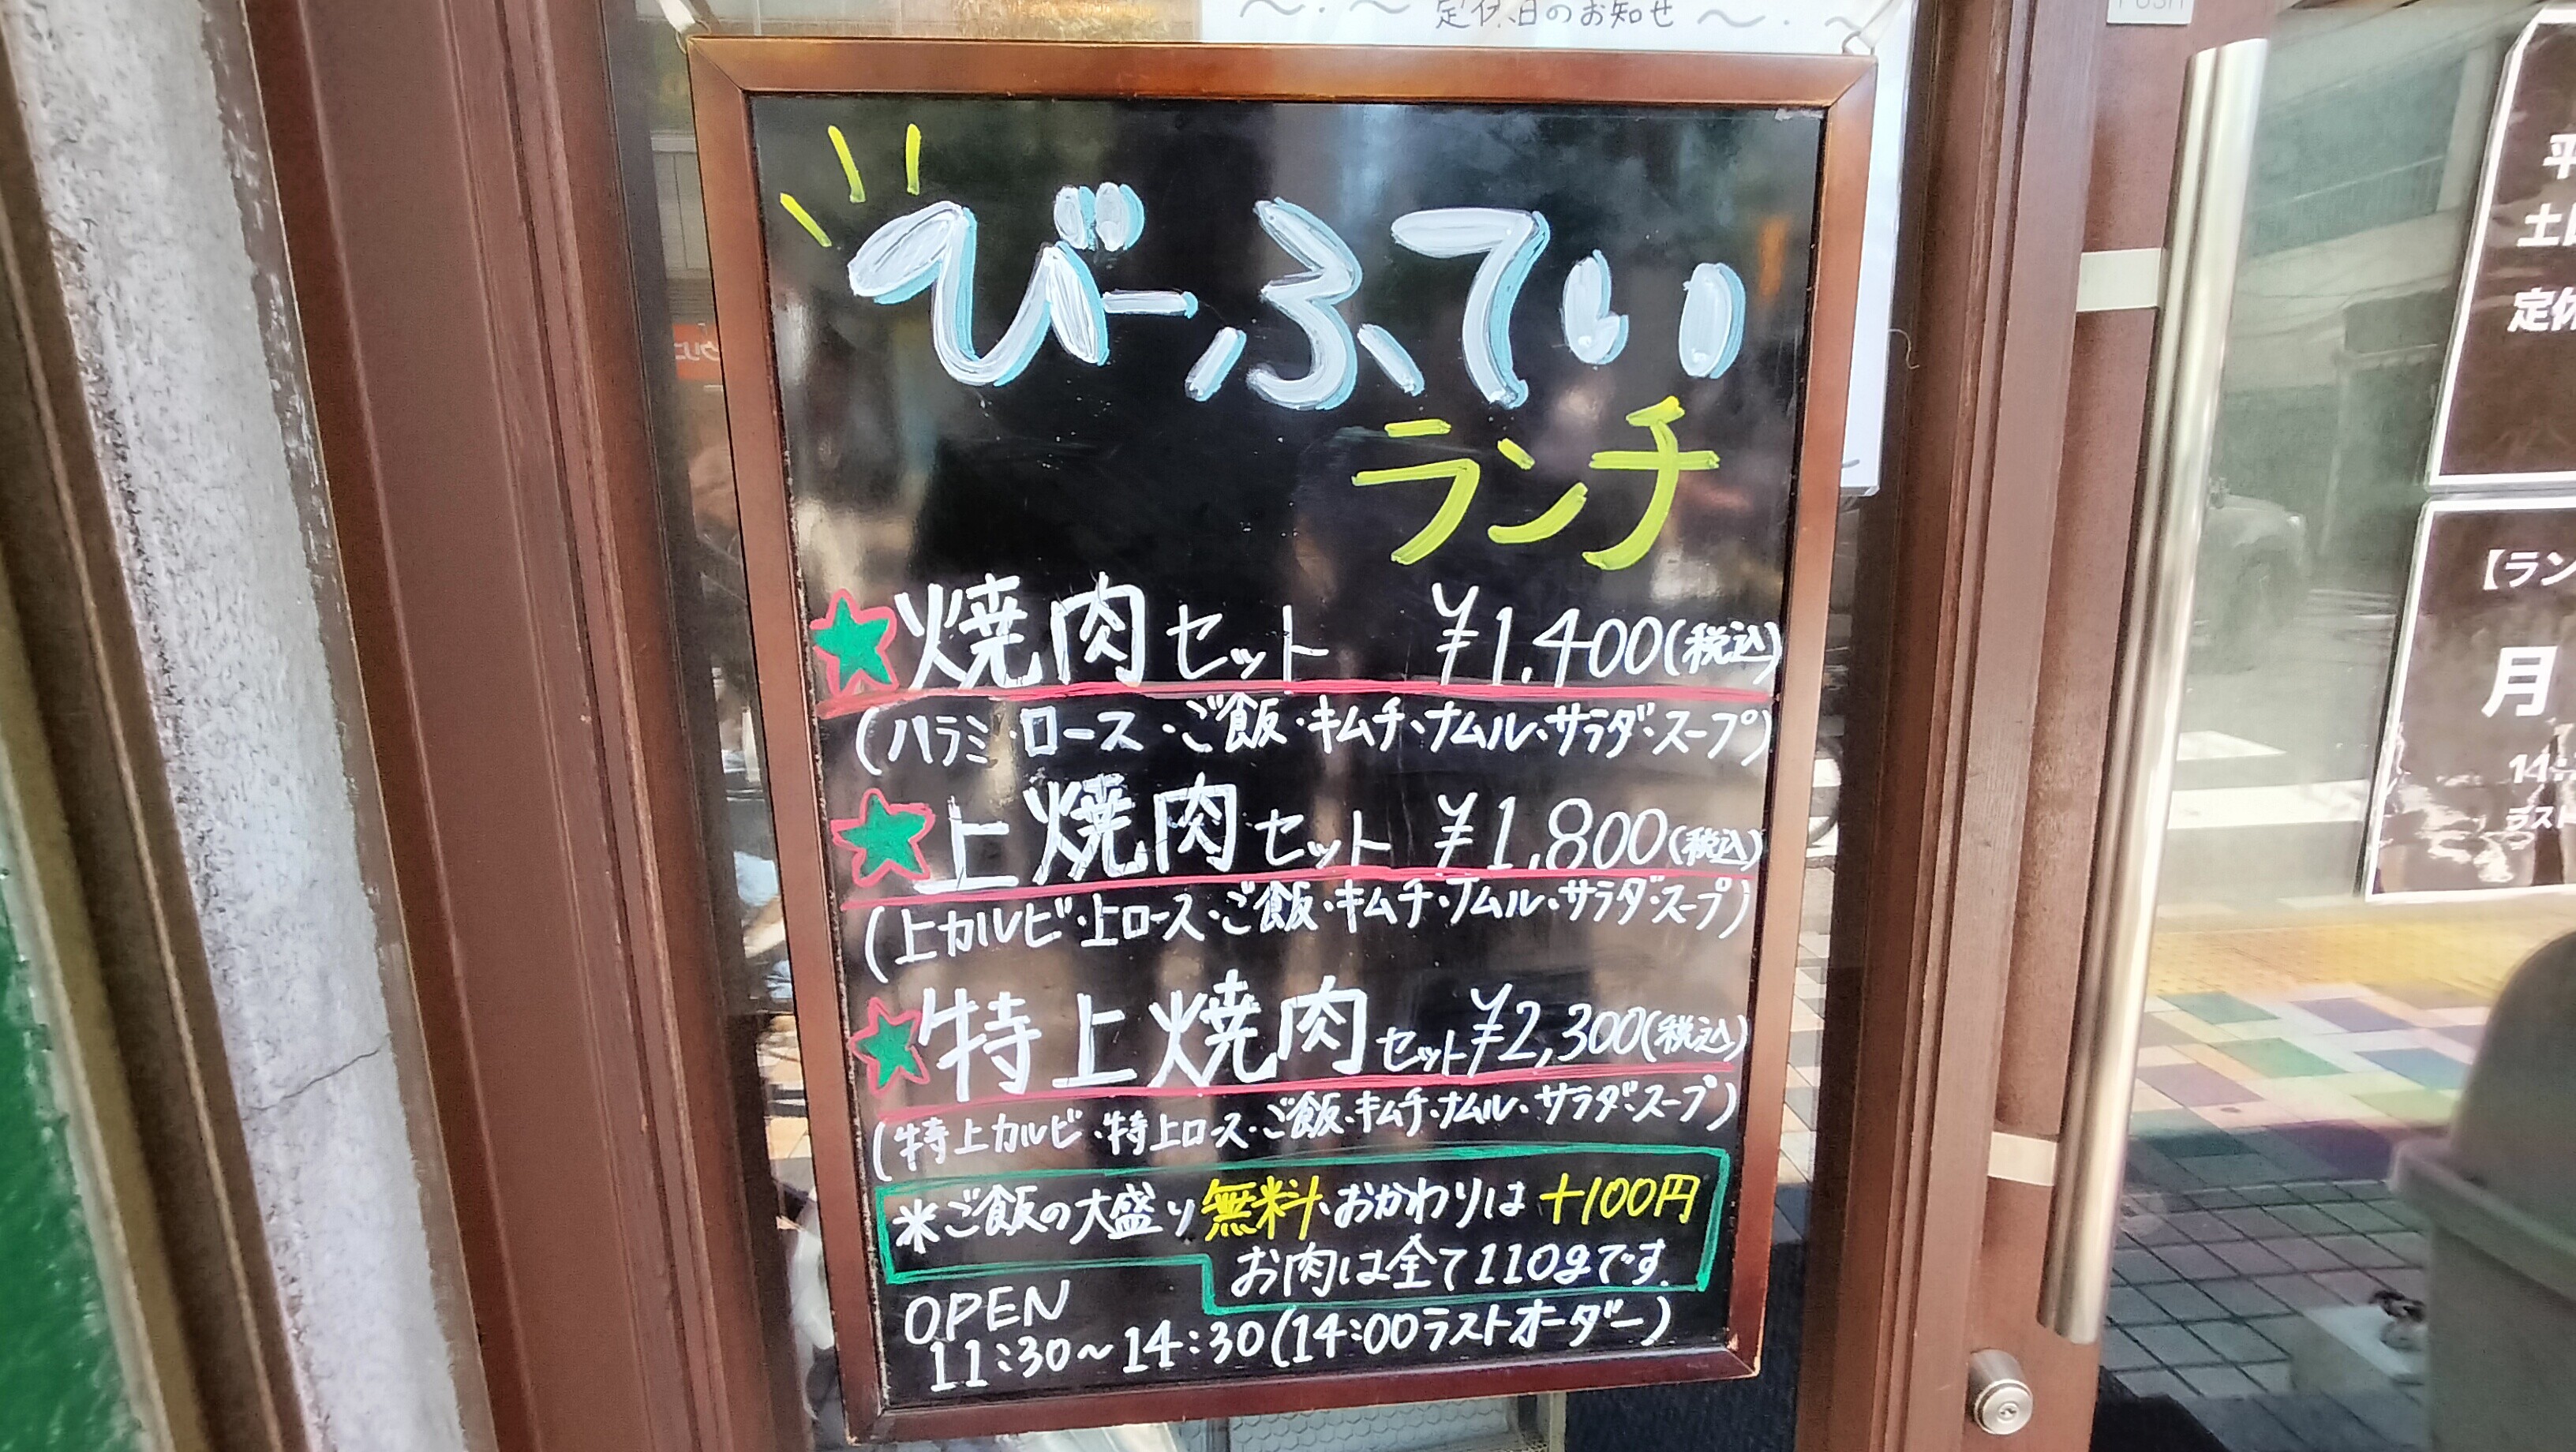 定休日のお知せ
PUSH
びーふてい
ランチ
★焼肉セット ¥1,400(税込)
(ハラミ・ロース・ご飯・キムチ・ナムル・サラダ・スープ)
★上焼肉セット ¥1,800(税込)
(上カルビ・上ロース・ご飯・キムチ・ナムル・サラダ・スープ)
★特上焼肉セット¥2,300(税込)
(特上カルビ・特上ロース・ご飯・キムチ・ナムル・サラダ・スープ)
※ご飯の大盛り無料、おかわりは+100円
お肉は全て110gです。
OPEN
11:30〜14:30(14:00ラストオーダー)
平
土
定休
【ラン
月
14
ラス